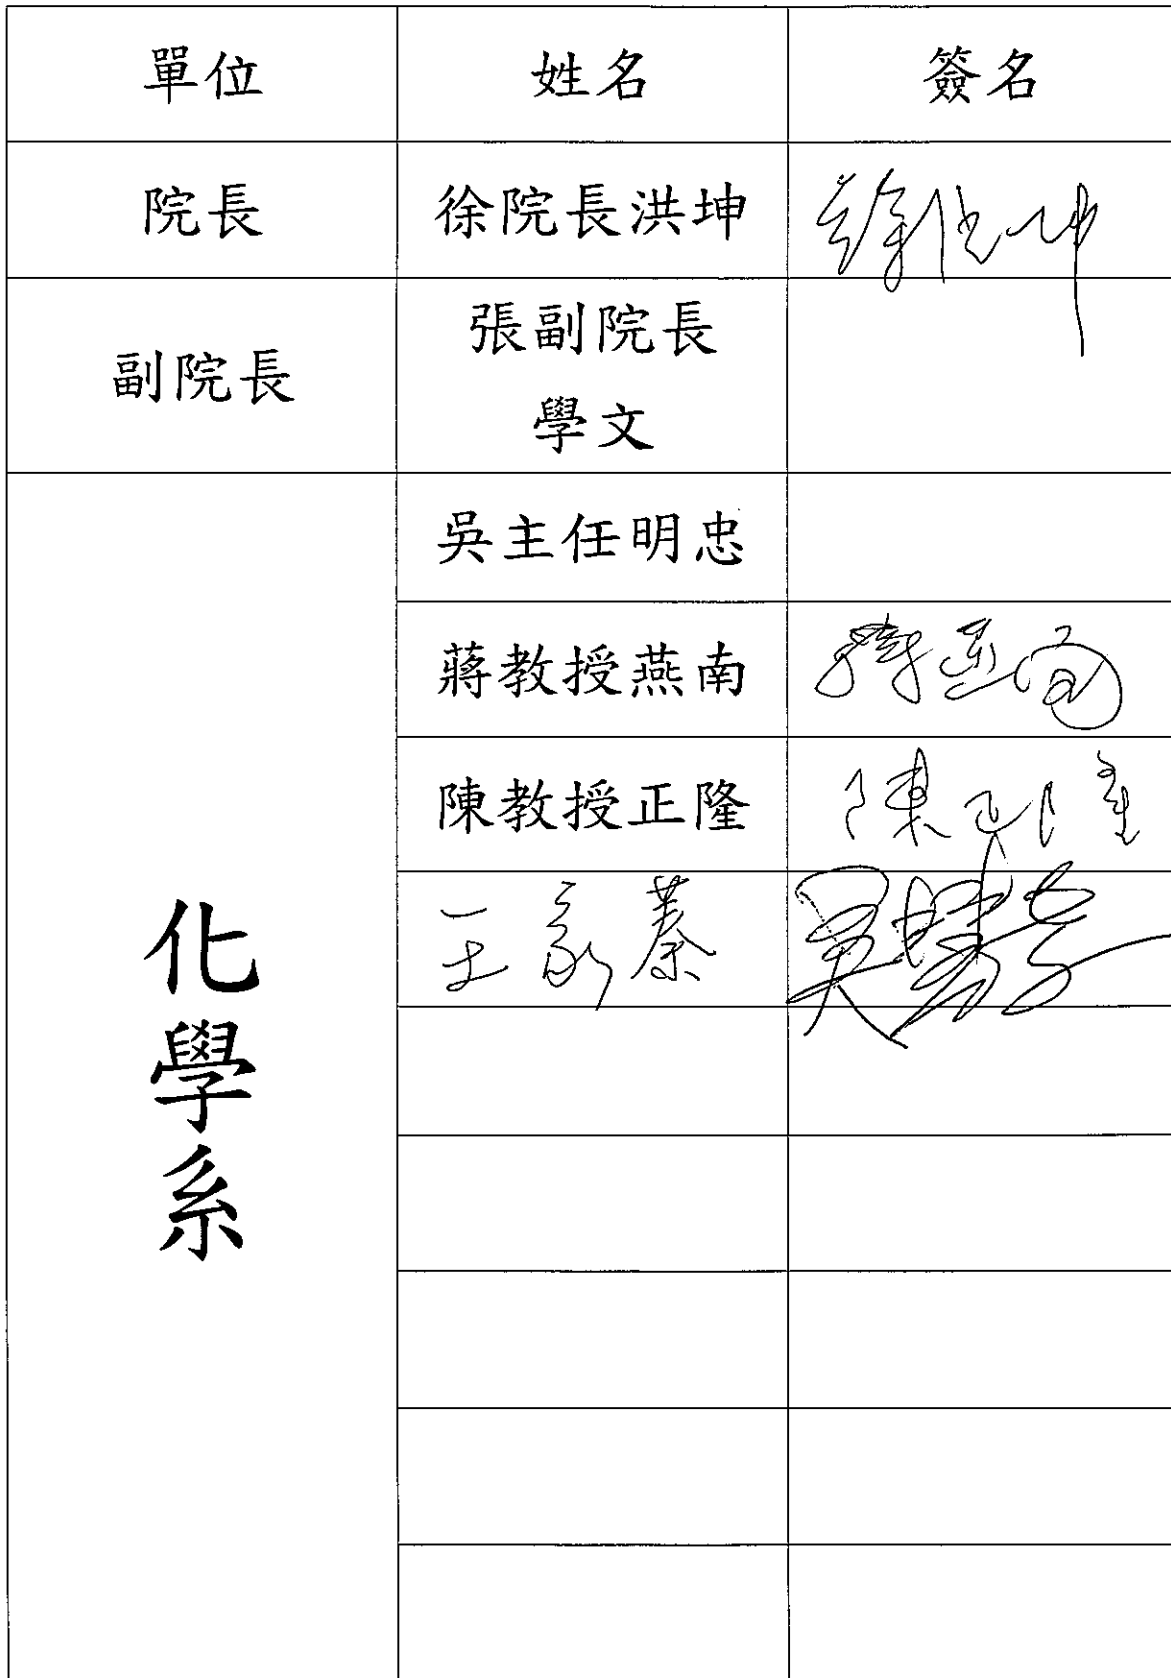 單位 姓名 簽名
院長 徐院長洪坤 徐洪坤
副院長 張副院長
學文
化學系
吳主任明忠
蔣教授燕南 蔣燕南
陳教授正隆 陳正隆
王家蓁